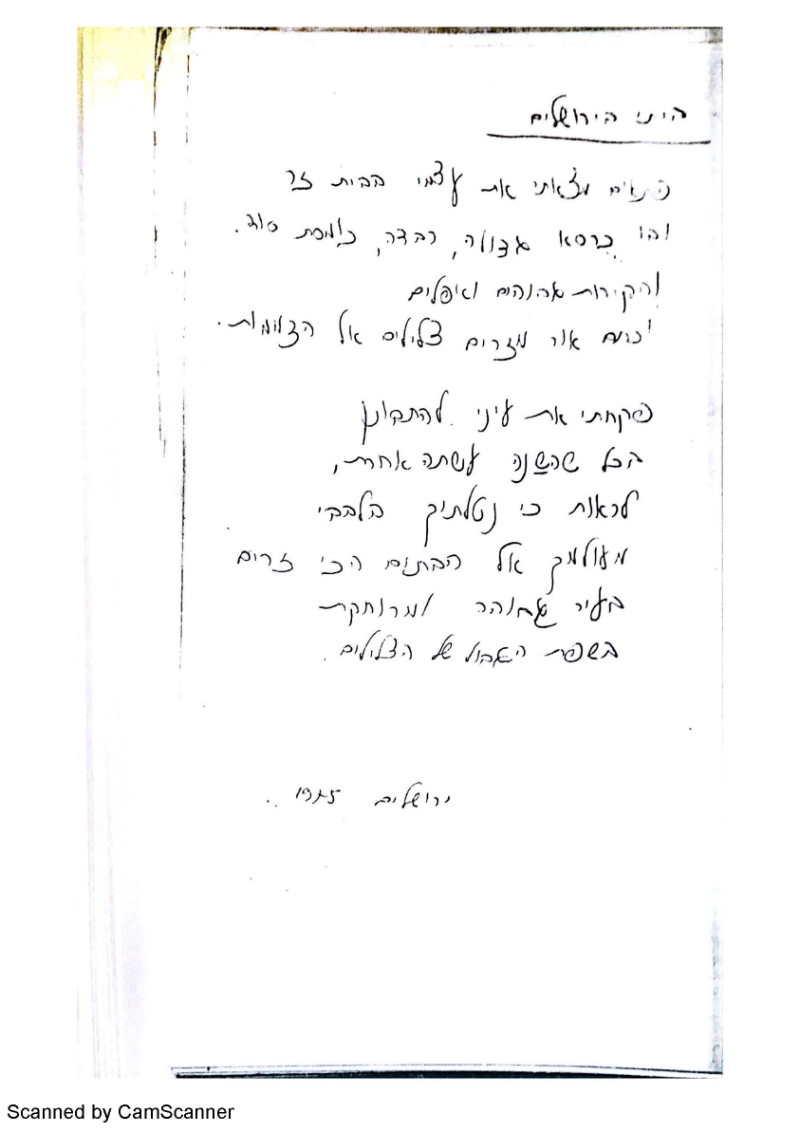 היתי בירושלים
פתאים מצאתי את עצמי בבית זר
ובו כרסא גדולה, רבדה, כומסת סוד.
והקירות גבוהים ואפלים
אור מזרים צלילים אל
פקחתי את עיני להתבונן
בכל שהשנה עשתה אחרת,
לראות כי נטלתיך בלבבי
מעולמך אל הבתים הכי זרים
בעיר גבוהה ומרוחקת
בשפת הגבול של הצלילים.
ירושלים
Scanned by CamScanner